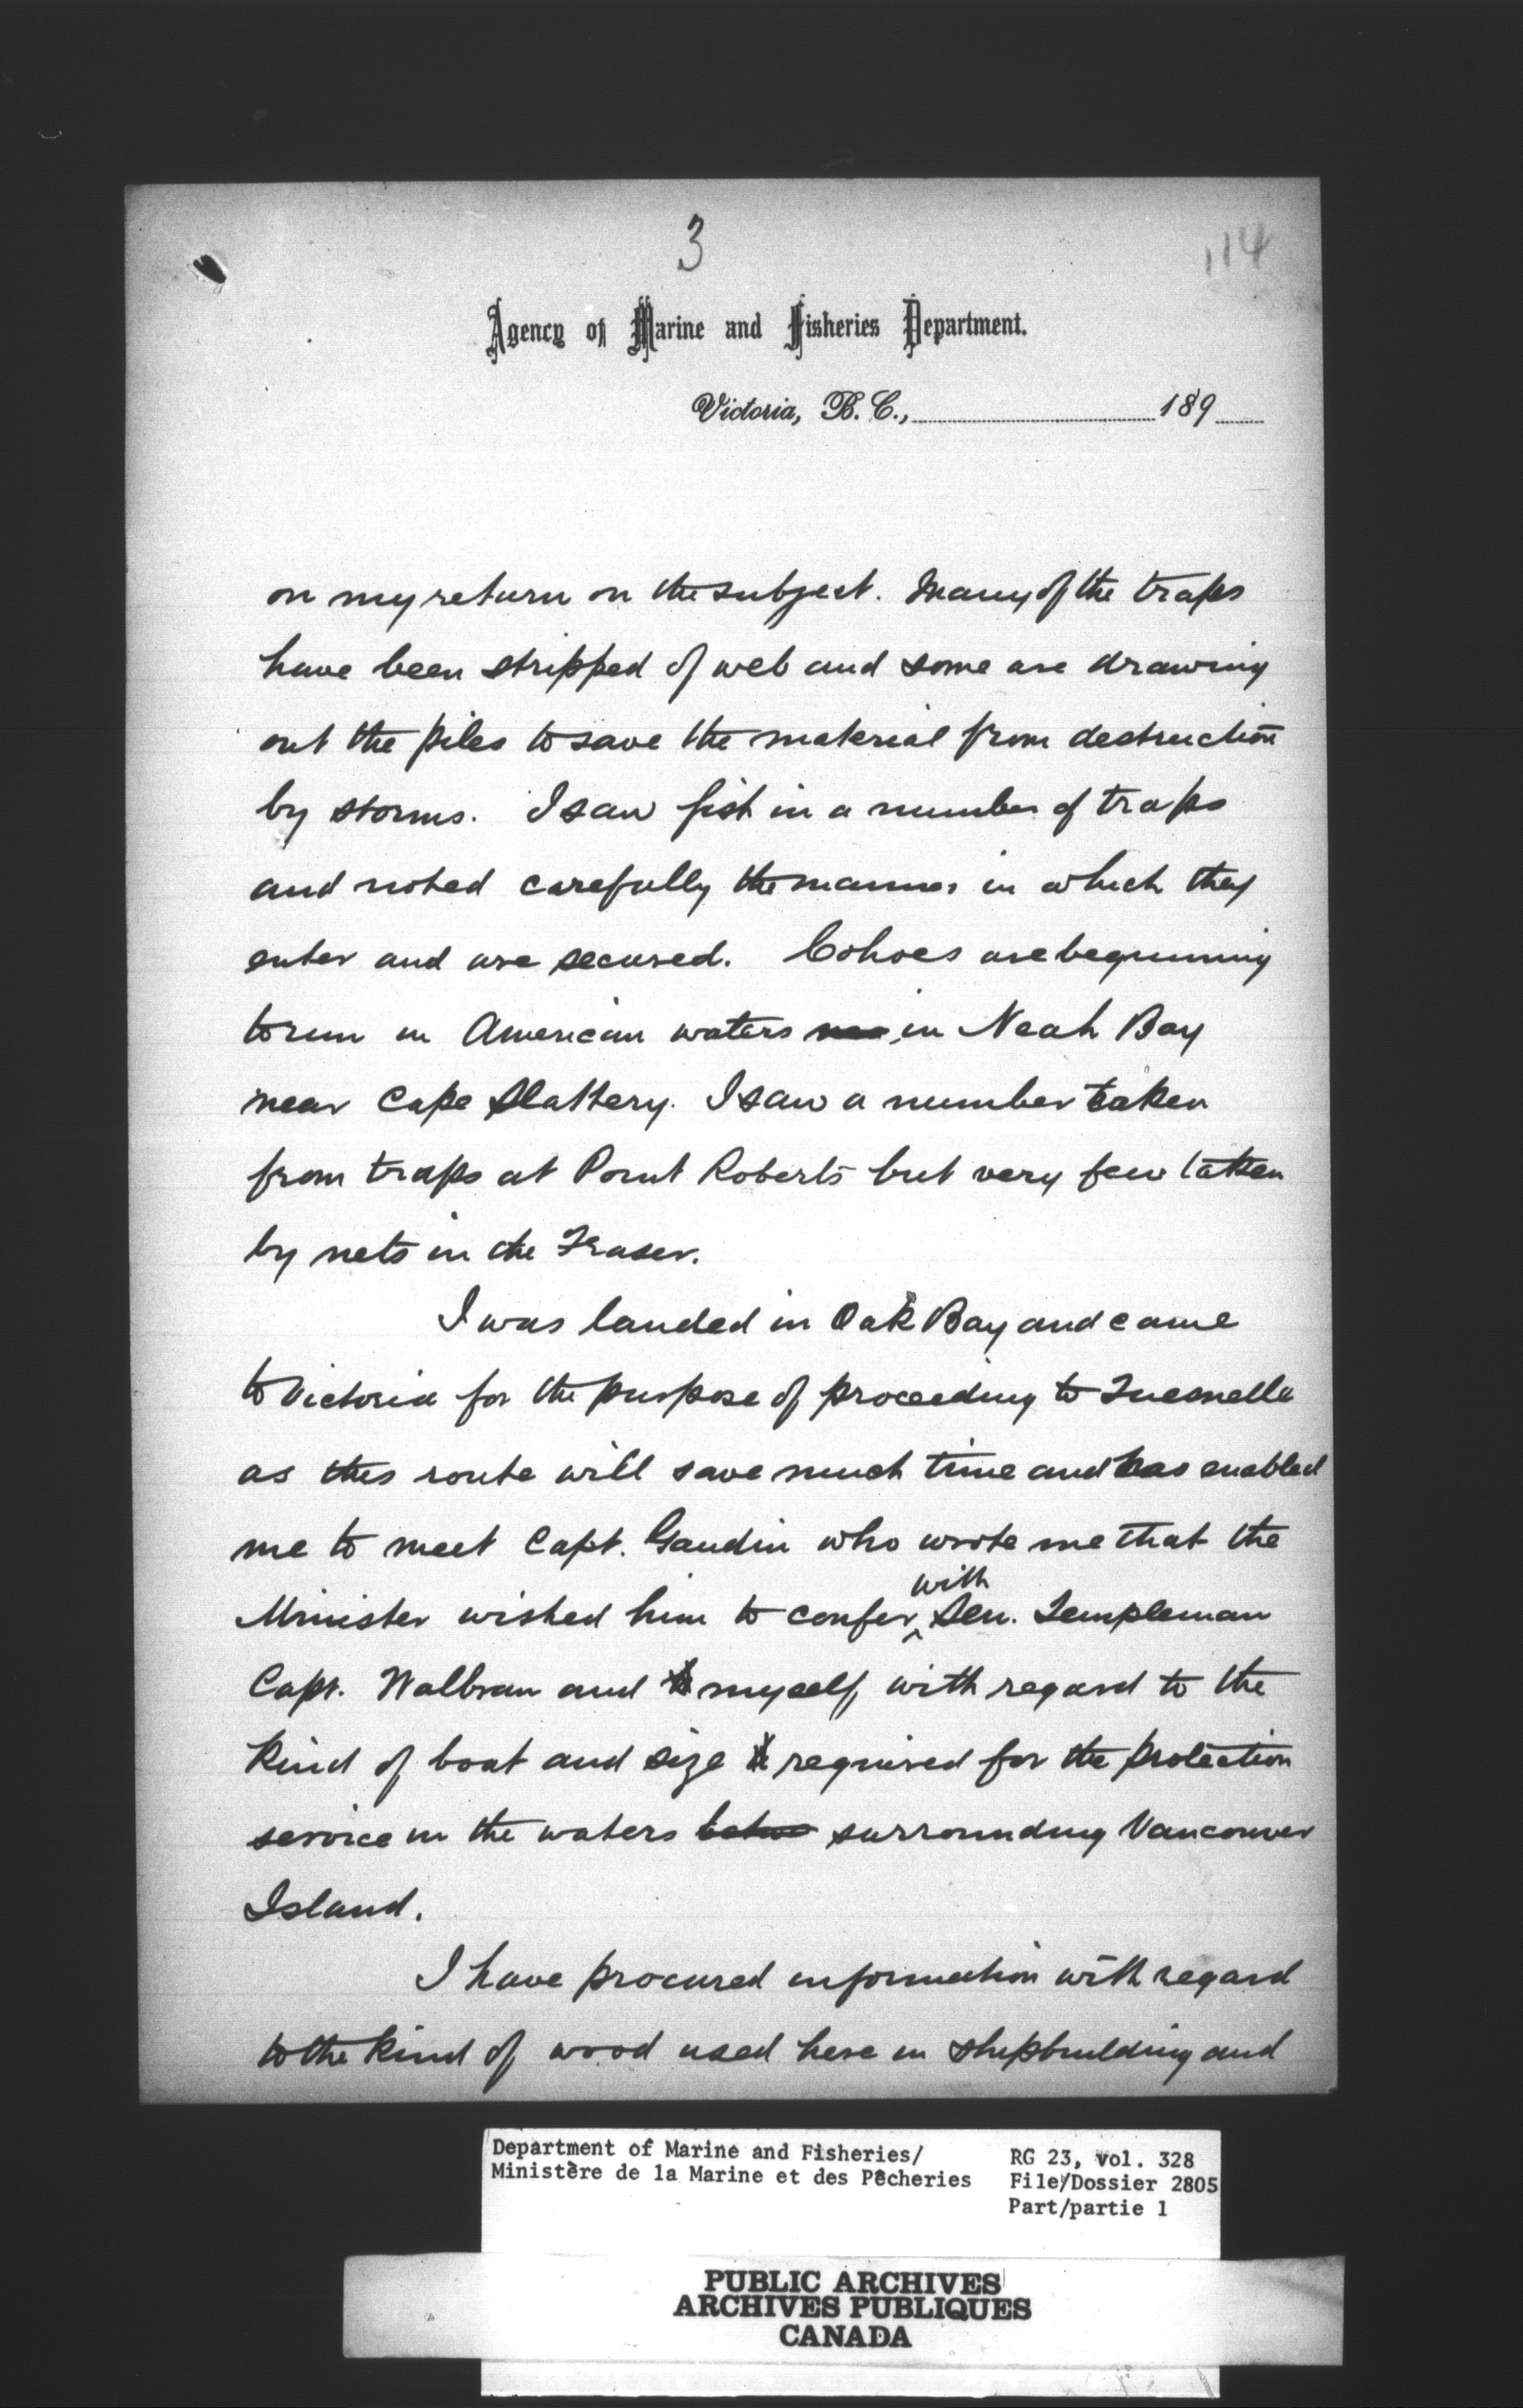 3
114
Agency of Marine and Fisheries Department.
Victoria, B. C., 189
on my return on the subject. Many of the traps
have been stripped of web and some are drawing
out the piles to save the material from destruction
by storms. I saw fish in a number of traps
and noted carefully the manner in which they
enter and are secured. Cohoes are beginning
to run in American waters in Neah Bay
near Cape Flattery. I saw a number taken
from traps at Point Roberts but very few taken
by nets in the Fraser.
I was landed in Oak Bay and came
to Victoria for the purpose of proceeding to Quesnelle
as this route will save much time and has enabled
me to meet Capt. Gaudin who wrote me that the
Minister wished him to confer with Sen. Templeman
Capt. Walbran and myself, with regard to the
kind of boat and size required for the protection
service in the waters surrounding Vancouver
Island.
I have procured information with regard
to the kind of wood used here in shipbuilding and
Department of Marine and Fisheries/
Ministère de la Marine et des Pêcheries
RG 23, vol. 328
File/Dossier 2805
Part/partie 1
PUBLIC ARCHIVES
ARCHIVES PUBLIQUES
CANADA